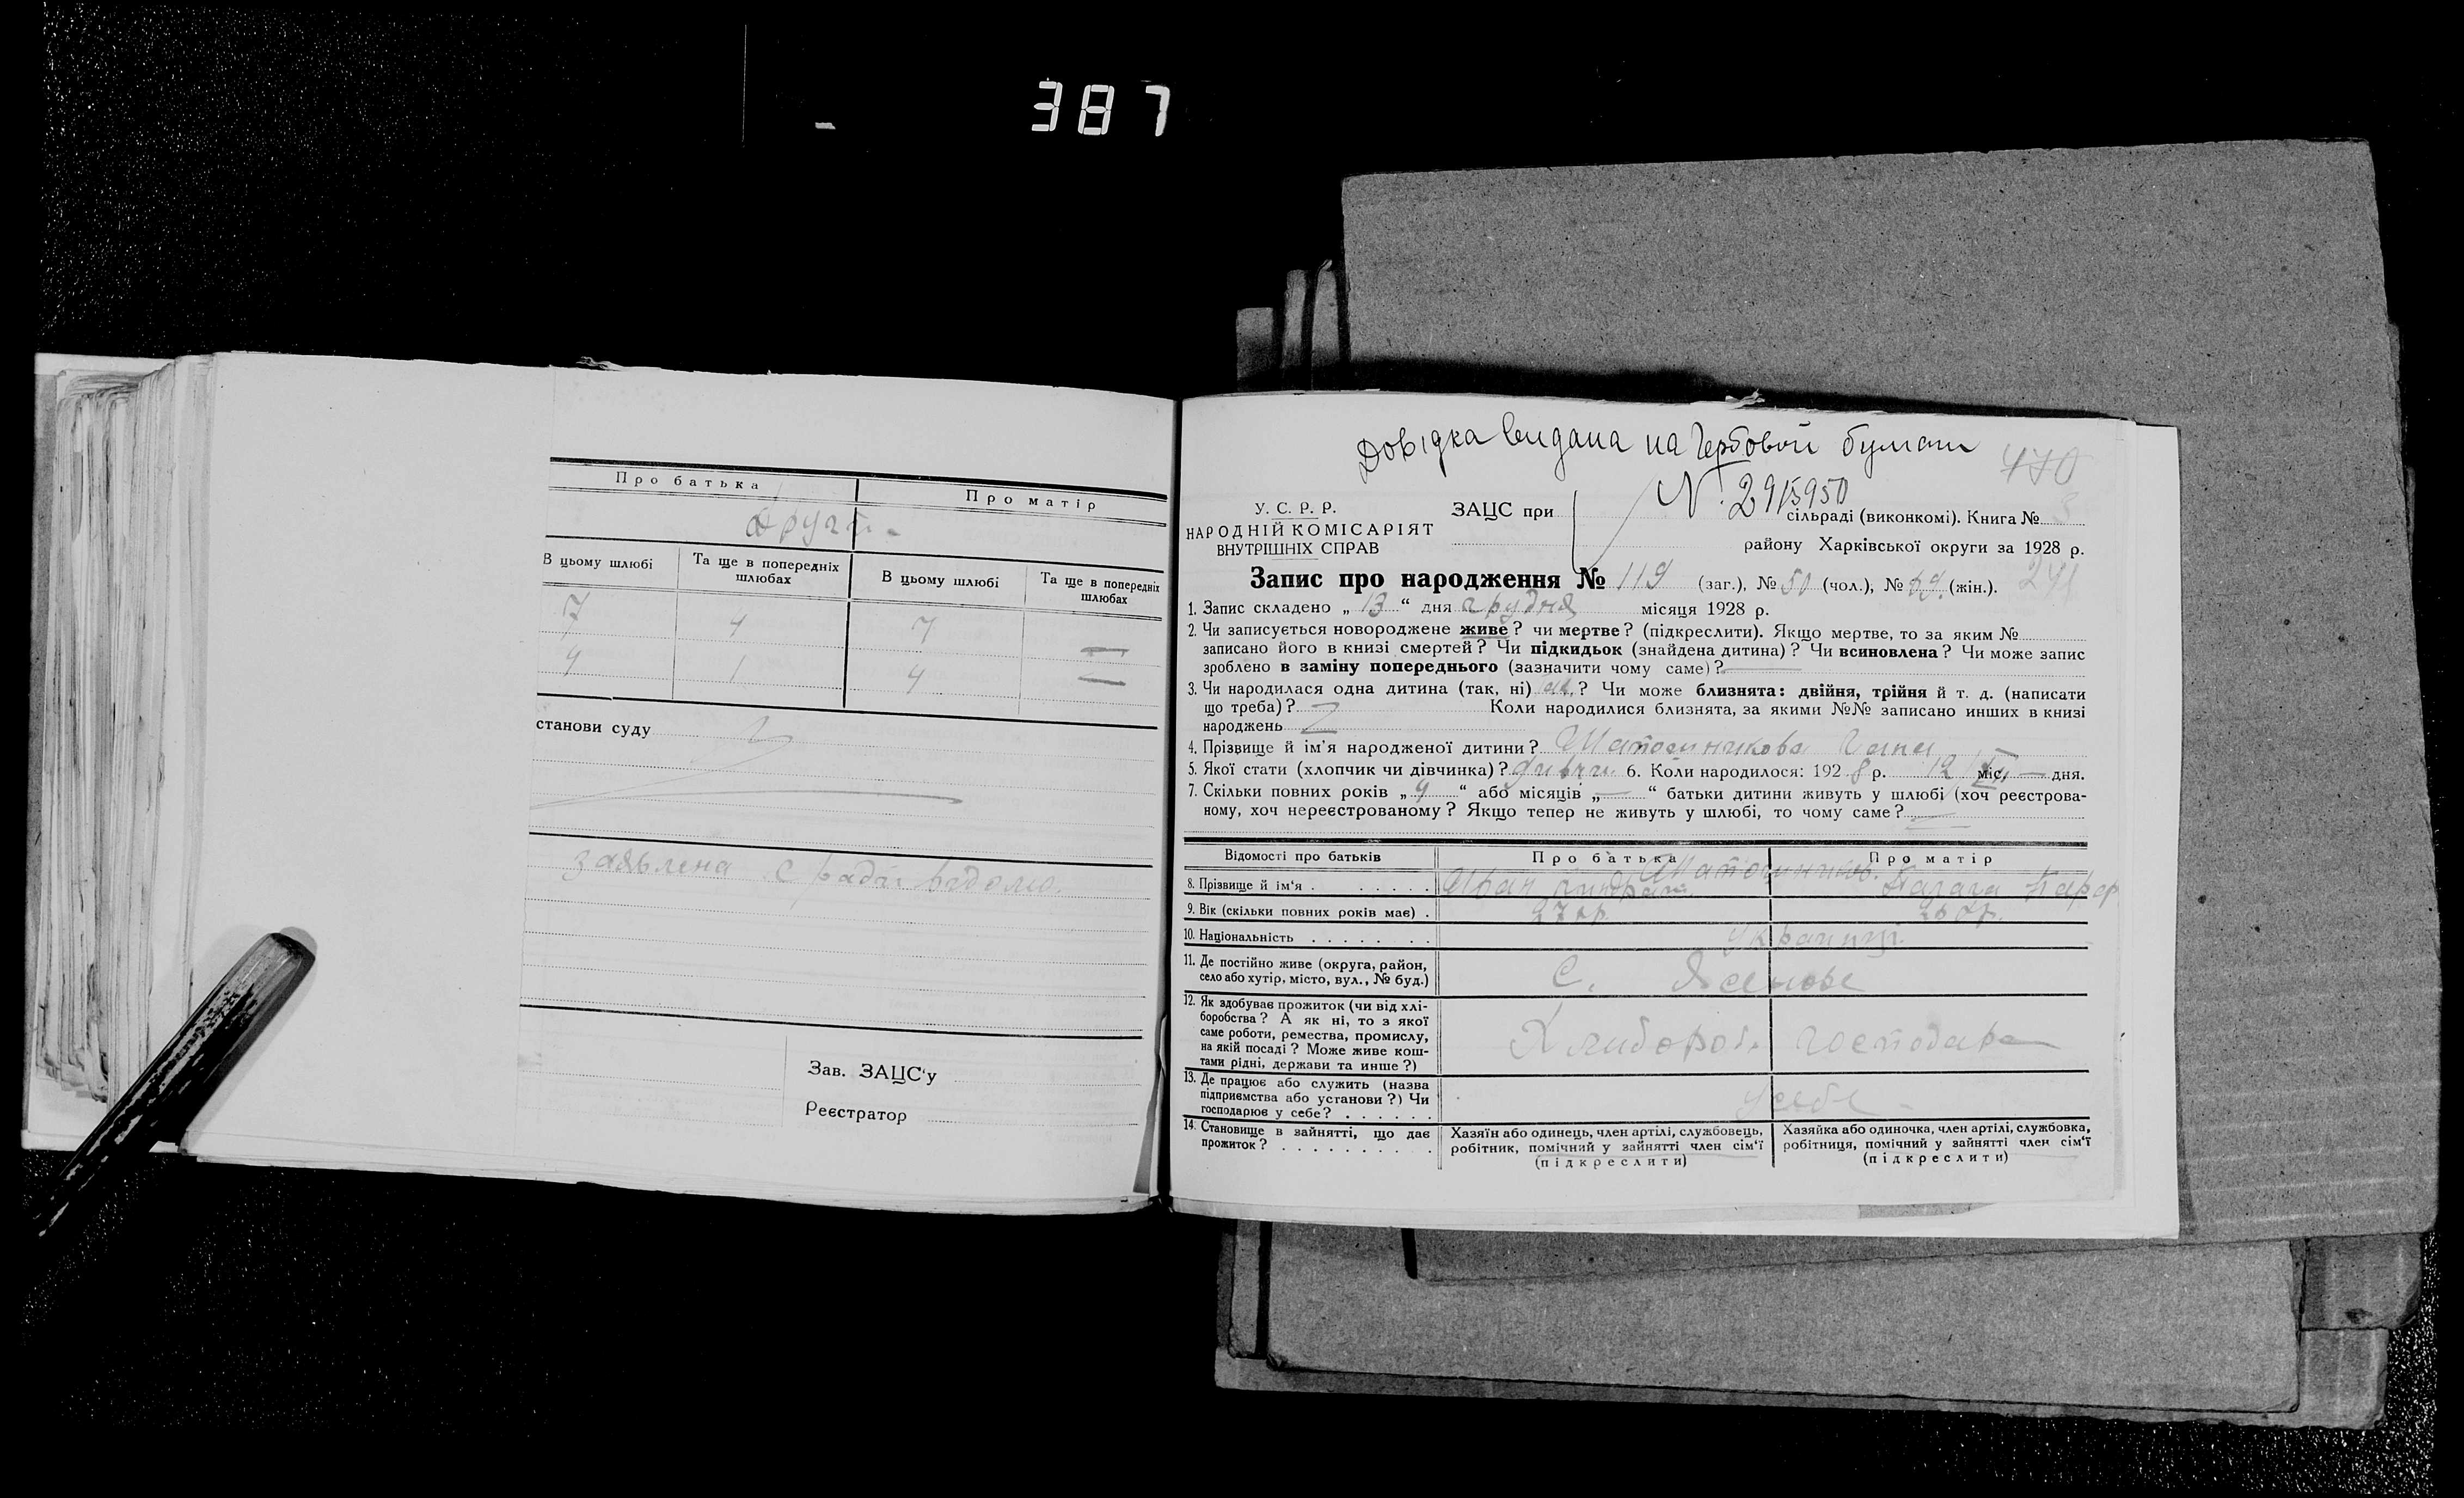 387
Про батька
Про матір
В цьому шлюбі
Та ще в попередніх шлюбах
В цьому шлюбі
Та ще в попередніх шлюбах
7 4 7 —
4 1 4 —
станови суду
заявлена
Зав. ЗАЦС'у
Реєстратор
Довідка видана на Гербовой бумаги
470
N. 2915950
У. С. Р. Р.
НАРОДНІЙ КОМІСАРІЯТ
ВНУТРІШНІХ СПРАВ
ЗАЦС при
сільраді (виконкомі). Книга №
району Харківської округи за 1928 р.
Запис про народження № 119 (заг.), № 50 (чол.), № 69. (жін.).
1. Запис складено „ 13 “ дня грудня місяця 1928 р.
2. Чи записується новороджене живе? чи мертве? (підкреслити). Якщо мертве, то за яким №
записано його в книзі смертей? Чи підкидьок (знайдена дитина)? Чи всиновлена? Чи може запис
зроблено в заміну попереднього (зазначити чому саме)?
3. Чи народилася одна дитина (так, ні) ? Чи може близнята: двійня, трійня й т. д. (написати
що треба)? Коли народилися близнята, за якими №№ записано инших в книзі
народжень
4. Прізвище й ім'я народженої дитини?
5. Якої стати (хлопчик чи дівчинка)? 6. Коли народилося: 192 8 р. 12 міс. — дня.
7. Скільки повних років „ 9 “ або місяців „ — “ батьки дитини живуть у шлюбі (хоч реєстрова-
ному, хоч нереєстрованому? Якщо тепер не живуть у шлюбі, то чому саме?
Відомості про батьків
Про батька
Про матір
8. Прізвище й ім'я
9. Вік (скільки повних років має)
27 р.
10. Національність
Украинц.
11. Де постійно живе (округа, район,
село або хутір, місто, вул., № буд.)
С. Ясенове
12. Як здобуває прожиток (чи від хлі-
боробства? А як ні, то з якої
саме роботи, ремества, промислу,
на якій посаді? Може живе кош-
тами рідні, держави та инше?)
Хлибороб. господаре
13. Де працює або служить (назва
підприємства або установи?) Чи
господарює у себе?
у себе
14. Становище в зайнятті, що дає
прожиток?
Хазяїн або одинець, член артілі, службовець,
робітник, помічний у зайнятті член сім'ї
(підкреслити)
Хазяйка або одиночка, член артілі, службовка,
робітниця, помічний у зайнятті член сім'ї
(підкреслити)